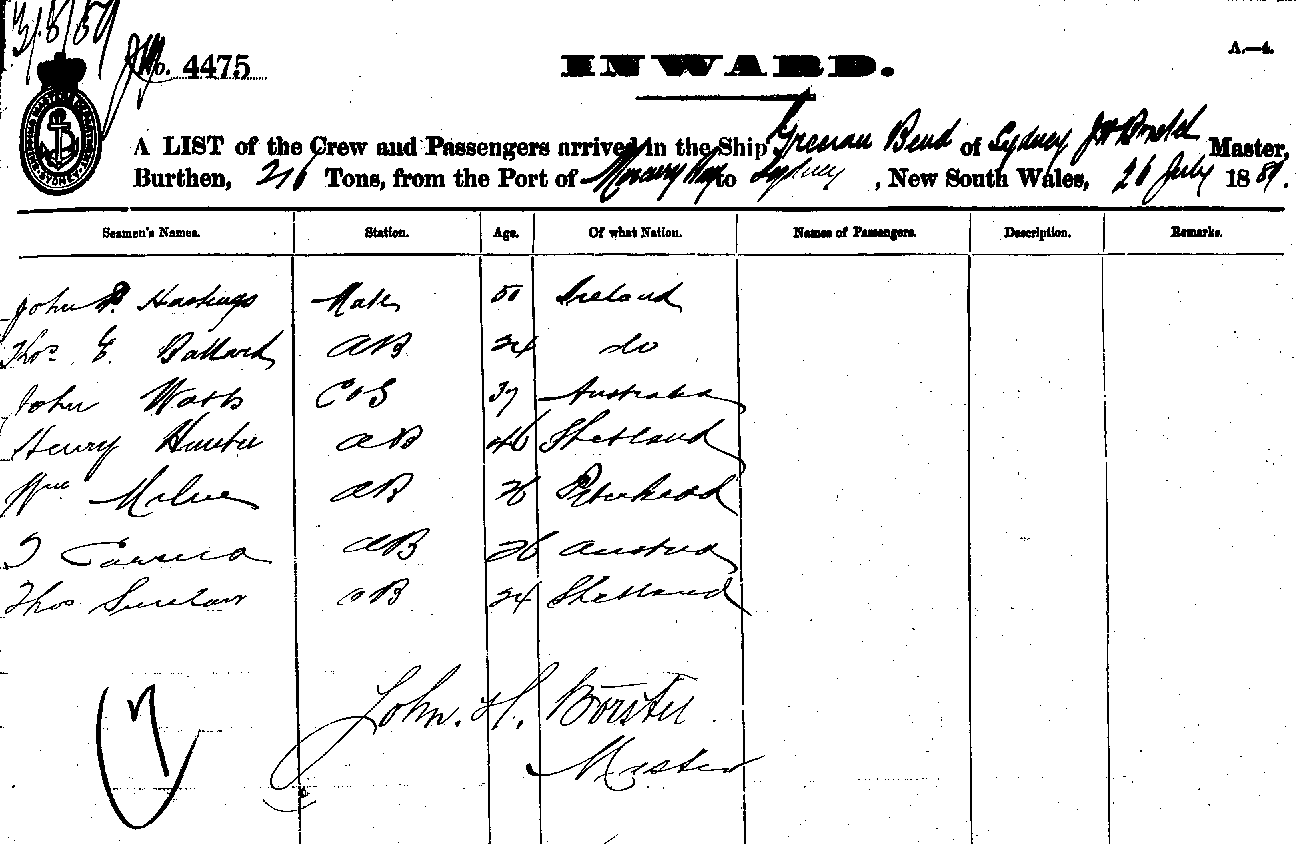 31/8/89
No. 4475
INWARD.
A.—4.
A LIST of the Crew and Passengers arrived in the Ship Grecian Bend of Sydney J H Master,
Burthen, 216 Tons, from the Port of Mercury Bay to Sydney, New South Wales, 26 July 1889.
Seamen's Names. Station. Age. Of what Nation. Names of Passengers. Description. Remarks.
John P. Hastings Mate 50 Ireland
Thos E. Ballard AB 24 do
John Watts C&S 37 Australia
Henry Hunter AB 46 Shetland
Wm Milne AB 26 Peterhead
AB 26 Austria
Thos Sinclair AB 24 Shetland
John. H. Börster
Master
7